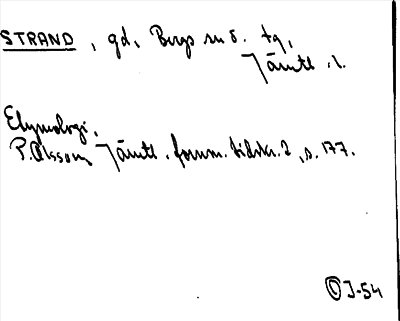 STRAND, gd, Bergs sn o. tg,
Jämtl. l.
Etymologi,
P. Olsson Jämtl. fornm. tidskr. 2, s. 177.
J-54